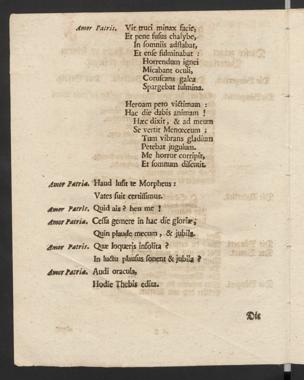 Amor Patris. Vir truci minax facie,
Et pene fusus chalybe,
In somniis adstabat,
Et ense fulminabat:
Horrendum ignei
Micabant oculi,
Coruscans galea
Spargebat fulmina.
Heroam peto victimam:
Hac die dabis animam!
Hæc dixit, & ad meum
Se vertit Menœceum;
Tum vibrans gladium
Petebat jugulum.
Me horror corripit,
Et somnum discutit.
Amor Patriæ. Haud lusit te Morpheus:
Vates fuit certissimus.
Amor Patris. Quid ais? heu me!
Amor Patriæ. Cessa gemere in hac die gloriæ,
Quin plaude mecum, & jubila.
Amor Patris. Quæ loqueris insolita?
In luctu plausus sonent & jubila?
Amor Patriæ. Audi oracula,
Hodie Thebis edita.
Die